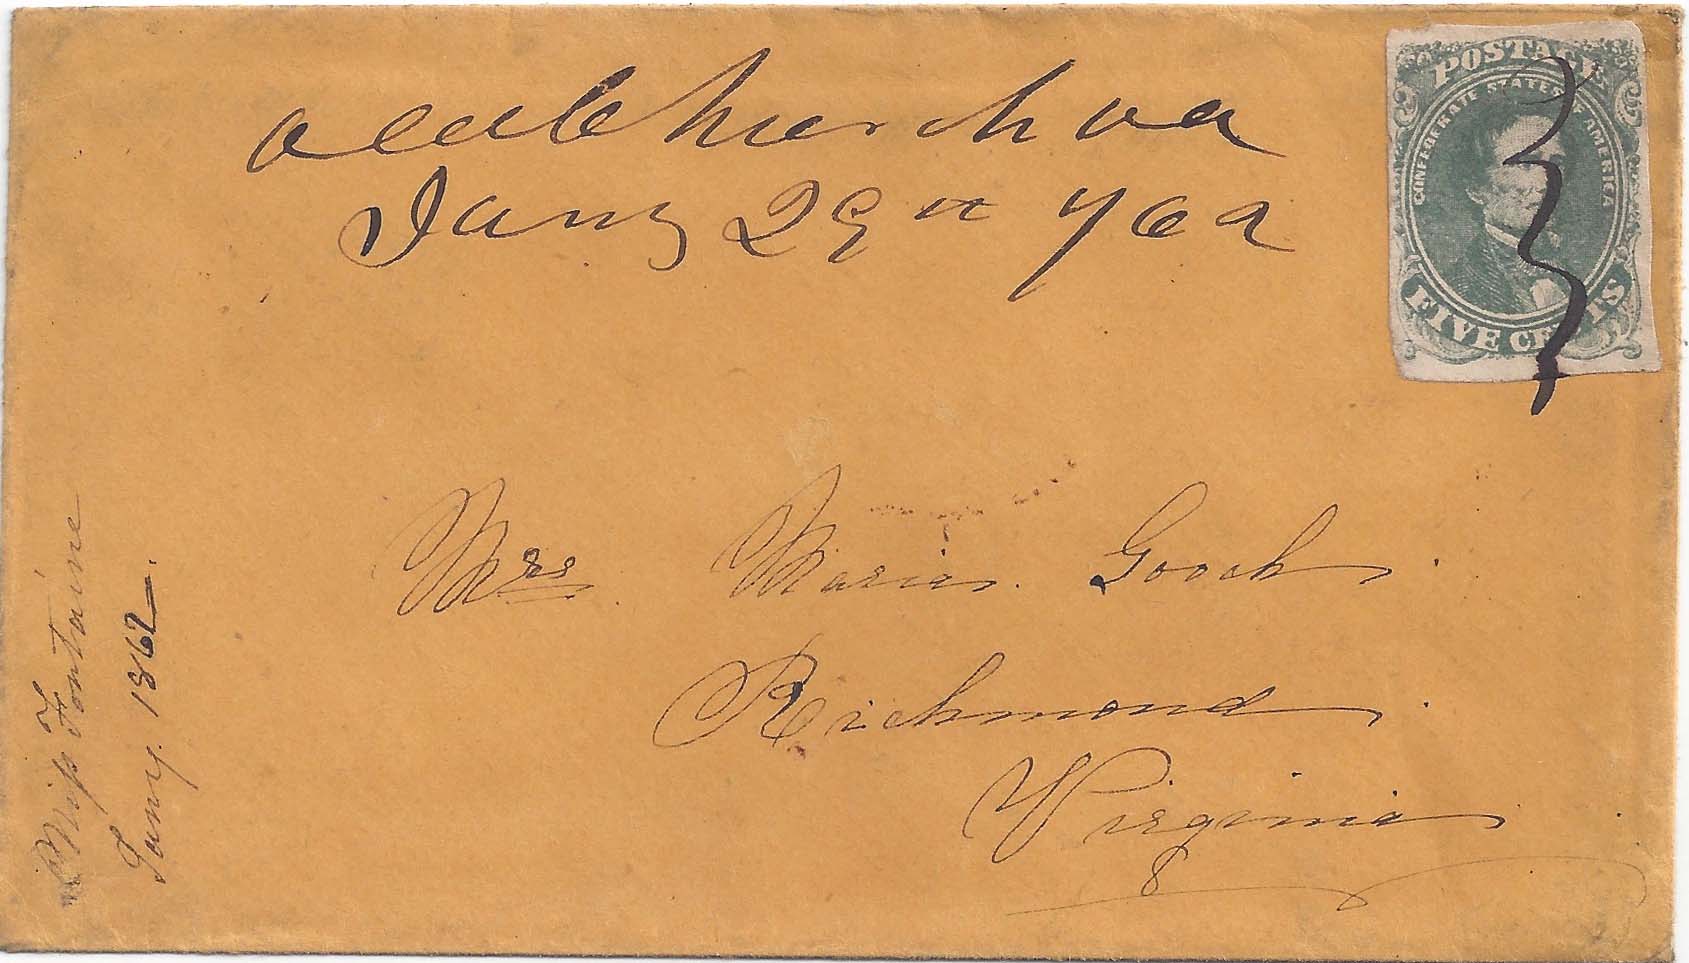 oldchurch va
Jany 29th /62
POSTAGE
CONFEDERATE STATES OF AMERICA
FIVE CENTS
Mrs Maria Gooch.
Richmond.
Virginia
Miss Fontaine
Jany. 1862.